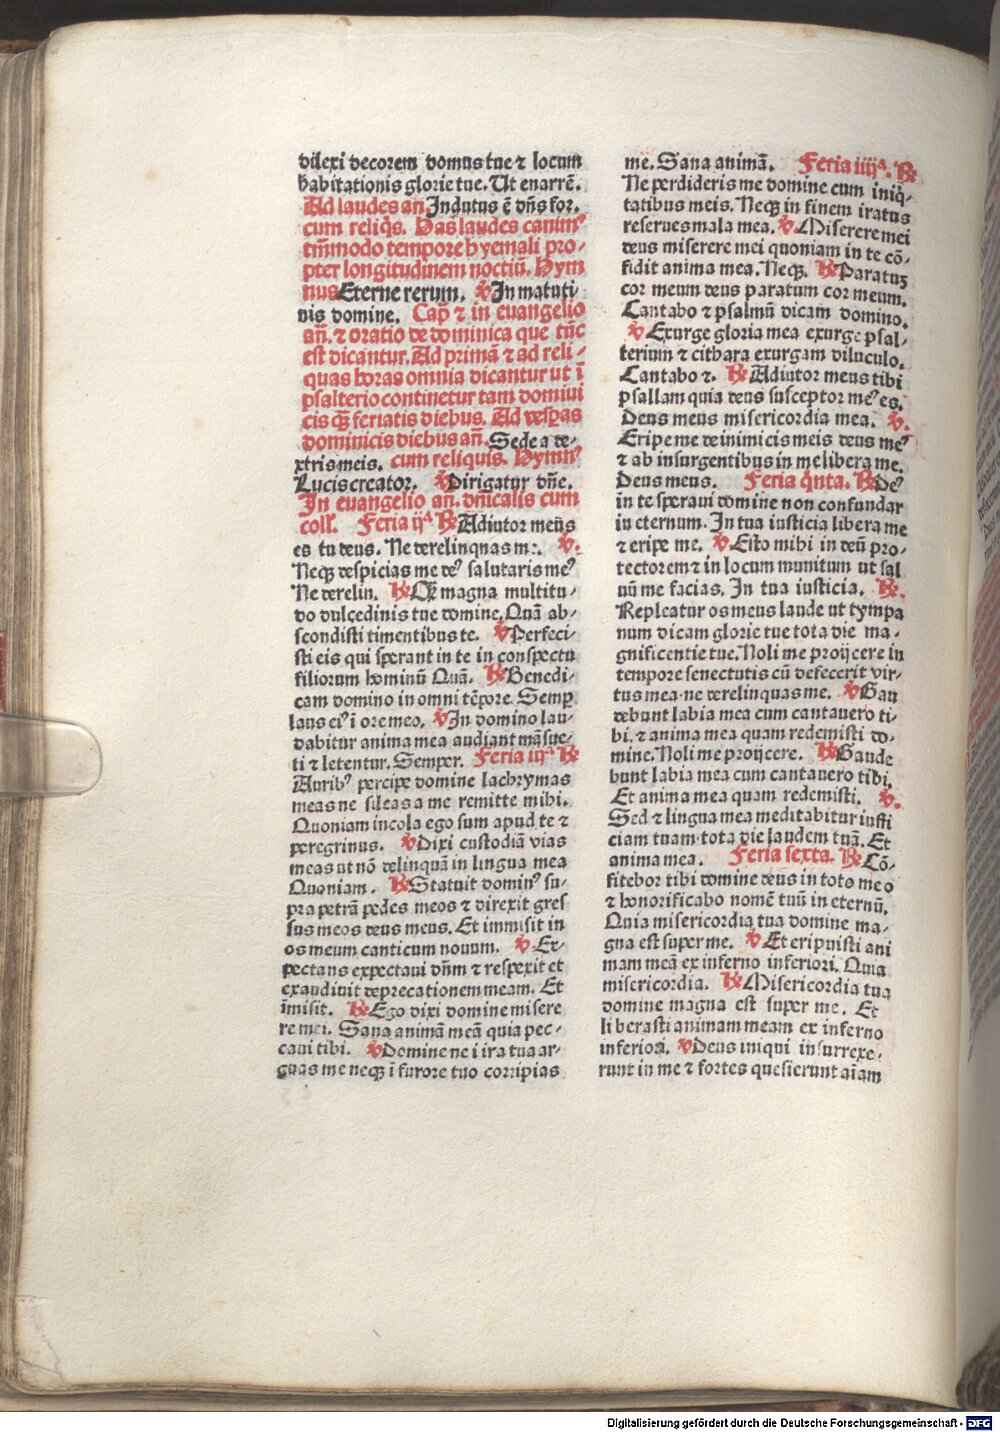 dilexi decorem domus tue ⁊ locum
habitationis glorie tue. Ut enarrē.
Ad laudes añ Indutus ē dñs for.
cum reliq̄s. Has laudes canimꝰ
tm̄modo tempore hyemali pro-
pter longitudinem noctiū. Hym
nus Eterne rerum. ℣ In matuti
nis domine. Cap̄ ⁊ in euangelio
añ. ⁊ oratio de dominica que tūc
est dicantur. Ad primā ⁊ ad reli-
quas horas omnia dicantur ut ī
psalterio continetur tam domini
cis qꝫ feriatis diebus. Ad vesꝑas
dominicis diebus añ. Sede a de-
xtris meis. cum reliquis. Hymnꝰ
Lucis creator. ℣ Dirigatur dñe.
In euangelio añ. dñicalis cum
coll'. Feria ijª ℟ Adiutor meus
es tu deus. Ne derelinquas me. ℣.
Neqꝫ despicias me deꝰ salutaris meꝰ
Ne derelin. ℟ Qꝫ magna multitu-
do dulcedinis tue domine. Quā ab-
scondisti timentibus te. ℣ Perfeci-
sti eis qui sperant in te in conspectu
filiorum hominū Quā. ℟ Benedi-
cam domino in omni tēpore. Semꝑ
laus eiꝰ ī ore meo. ℣ In domino lau-
dabitur anima mea audiant māsue-
ti ⁊ letentur. Semper. Feria iijª ℟
Auribꝰ percipe domine lachrymas
meas ne sileas a me remitte mihi.
Quoniam incola ego sum apud te ⁊
peregrinus. ℣ Dixi custodiā vias
meas ut nō delinquā in lingua mea
Quoniam. ℟ Statuit dominꝰ su-
pra petrā pedes meos ⁊ direxit gres
sus meos deus meus. Et immisit in
os meum canticum nouum. ℣ Ex-
pectans expectaui dñm ⁊ respexit et
exaudiuit deprecationem meam. Et
īmisit. ℟ Ego dixi domine misere
re mei. Sana animā meā quia pec-
caui tibi. ℣ Domine ne ī ira tua ar-
guas me neqꝫ ī furore tuo corripias
me. Sana animā. Feria iiijª. ℟
Ne perdideris me domine cum iniq̄-
tatibus meis. Neqꝫ in finem iratus
reserues mala mea. ℣ Miserere mei
deus miserere mei quoniam in te cō-
fidit anima mea. Neqꝫ. ℟ Paratuꝫ
cor meum deus paratum cor meum.
Cantabo ⁊ psalmū dicam domino.
℣ Exurge gloria mea exurge psal-
terium ⁊ cithara exurgam diluculo.
Cantabo ⁊. ℟ Adiutor meus tibi
psallam quia deus susceptor meꝰ es.
Deus meus misericordia mea. ℣.
Eripe me de inimicis meis deus meꝰ
⁊ ab insurgentibus in me libera me.
Deus meus. Feria q̄nta. ℟ Deꝰ
in te speraui domine non confundar
in eternum. In tua iusticia libera me
⁊ eripe me. ℣ Esto mihi in deū pro-
tectorem ⁊ in locum munitum ut sal
uū me facias. In tua iusticia. ℟.
Repleatur os meus laude ut tympa
num dicam glorie tue tota die ma-
gnificentie tue. Noli me proijcere in
tempore senectutis cū defecerit vir-
tus mea ne derelinquas me. ℣ Gau
debunt labia mea cum cantauero ti-
bi. ⁊ anima mea quam redemisti do-
mine. Noli me proijcere. ℟ Gaude
bunt labia mea cum cantauero tibi.
Et anima mea quam redemisti. ℣.
Sed ⁊ lingua mea meditabitur iusti
ciam tuam tota die laudem tuā. Et
anima mea. Feria sexta. ℟ Cō-
fitebor tibi domine deus in toto meo
⁊ honorificabo nomē tuū in eternū.
Quia misericordia tua domine ma-
gna est super me. ℣ Et eripuisti ani
mam meā ex inferno inferiori. Quia
misericordia. ℟ Misericordia tua
domine magna est super me. Et
liberasti animam meam ex inferno
inferiori. ℣ Deus iniqui insurrexe-
runt in me ⁊ fortes quesierunt aīam
Digitalisierung gefördert durch die Deutsche Forschungsgemeinschaft - DFG